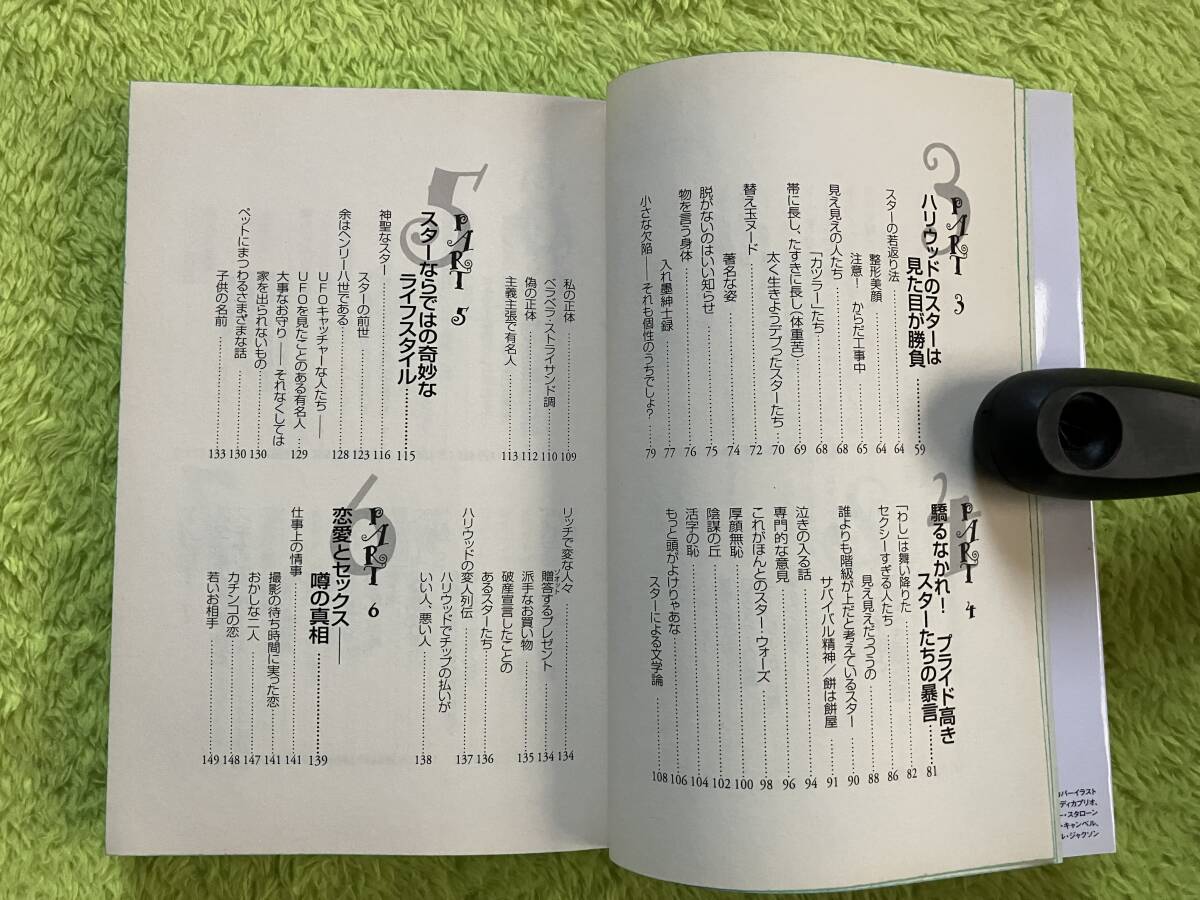 PART 3
ハリウッドのスターは
見た目が勝負……59
スターの若返り法……64
整形美顔……64
注意！ からだ工事中……65
見え見えの人たち……68
「カツラー」たち……68
帯に長し、たすきに長し(体重苦)……69
太く生きようデブったスターたち……70
替え玉ヌード……72
著名な姿……74
脱がないのはいい知らせ……75
物を言う身体……76
入れ墨紳士録……77
小さな欠陥——それも個性のうちでしょ？……79
PART 4
驕るなかれ！ プライド高き
スターたちの暴言……81
「わし」は舞い降りた……82
セクシーすぎる人たち……86
見え見えだっつうの……88
誰よりも階級が上だと考えているスター……90
サバイバル精神／餅は餅屋……91
泣きの入る話……94
専門的な意見……96
これがほんとのスター・ウォーズ……98
厚顔無恥……100
陰謀の丘……102
活字の恥……104
もっと頭がよけりゃあな……106
スターによる文学論……108
私の正体……109
ベラベラ・ストライサンド調……110
偽の正体……112
主義主張で有名人……113
PART 5
スターならではの奇妙な
ライフスタイル……115
神聖なスター……116
スターの前世……123
余はヘンリー八世である……128
UFOキャッチャーな人たち——
UFOを見たことのある有名人……129
大事なお守り——それなくしては
家を出られないもの……130
ペットにまつわるさまざまな話……130
子供の名前……133
リッチで変な人々……134
贈答するプレゼント……134
派手なお買い物……135
破産宣言したことの
あるスターたち……136
ハリウッドの変人列伝……137
ハリウッドでチップの払いが
いい人、悪い人……138
PART 6
恋愛とセックス——
噂の真相……139
仕事上の情事……141
撮影の待ち時間に実った恋……141
おかしな二人……147
カチンコの恋……148
若いお相手……149
バーイラスト
ディカプリオ、
ー・スタローン
・キャンベル、
ル・ジャクソン